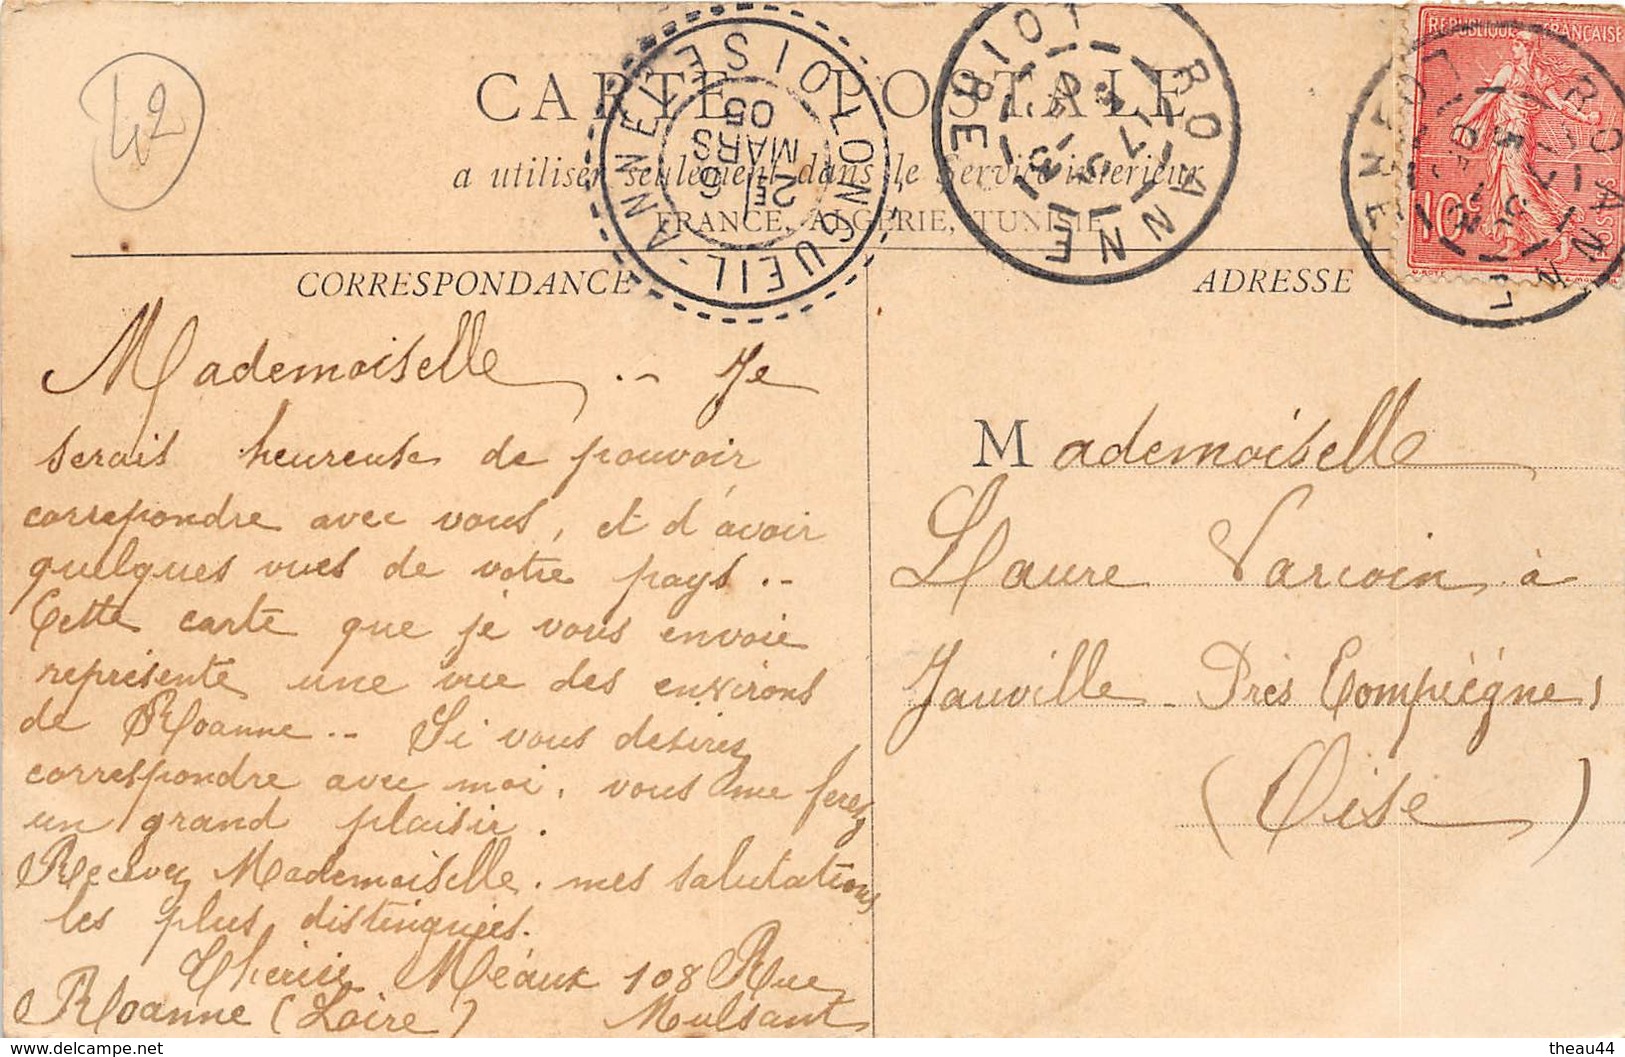 42
CARTE POSTALE
a utiliser seulement dans le Service intérieur
FRANCE, ALGÉRIE, TUNISIE
LONGUEIL-ANNEL
OISE
2E
6
MARS
05
ROANNE
LOIRE
ROANNE
REPUBLIQUE FRANÇAISE
10c
POSTES
CORRESPONDANCE
ADRESSE
Mademoiselle .. Je
serais heureuse de pouvoir
correpondre avec vous, et d'avoir
quelques vues de votre pays ..
Cette carte que je vous envoie
représente une vue des environs
de Roanne .. Si vous desirez
correspondre avec moi, vous me ferez
un grand plaisir.
Recevez Mademoiselle. mes salutations
les plus distinguées.
Méaux 108 Rue
Roanne (Loire) Mulsant
Mademoiselle
Laure Varcoin à
Janville - Près Compiègne,
(Oise)
theau44